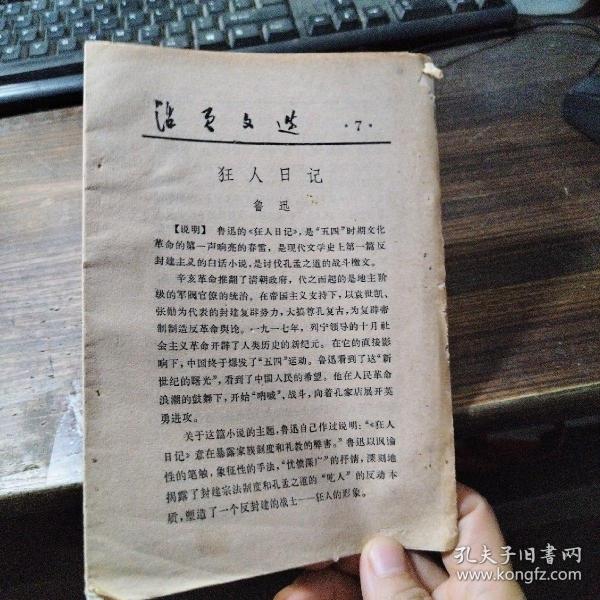 活页文选 ·7·
狂人日记
鲁迅
【说明】 鲁迅的《狂人日记》，是“五四”时期文化
革命的第一声响亮的春雷，是现代文学史上第一篇反
封建主义的白话小说，是讨伐孔孟之道的战斗檄文。
辛亥革命推翻了清朝政府，代之而起的是地主阶
级的军阀官僚的统治。在帝国主义支持下，以袁世凯、
张勋为代表的封建复辟势力，大搞尊孔复古，为复辟帝
制制造反革命舆论。一九一七年，列宁领导的十月社
会主义革命开辟了人类历史的新纪元。在它的直接影
响下，中国终于爆发了“五四”运动。鲁迅看到了这“新
世纪的曙光”，看到了中国人民的希望。他在人民革命
浪潮的鼓舞下，开始“呐喊”、战斗，向着孔家店展开英
勇进攻。
关于这篇小说的主题，鲁迅自己作过说明：“《狂人
日记》意在暴露家族制度和礼教的弊害。”鲁迅以讽谕
性的笔触，象征性的手法，“忧愤深广”的抒情，深刻地
揭露了封建宗法制度和孔孟之道的“吃人”的反动本
质，塑造了一个反封建的战士——狂人的形象。
孔夫子旧书网
www.kongfz.com